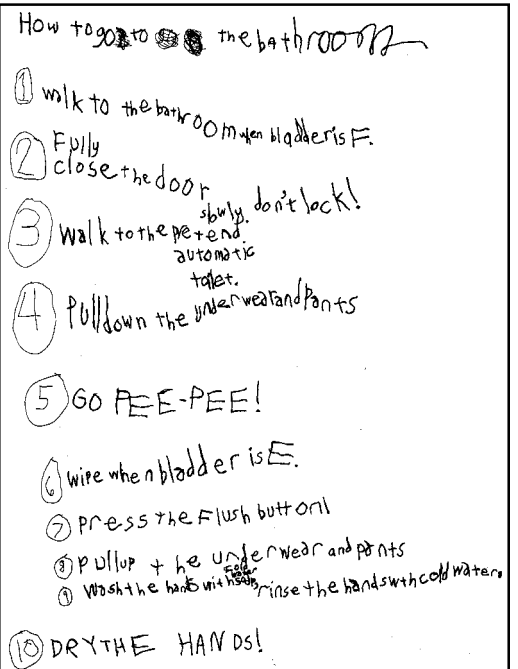 How to go to the bathroom
1 walk to the bathroom when bladder is F.
2 Fully
close the door
slowly. don't lock!
3 walk to the petend
automatic
toilet.
4 Pull down the underwear and Pants
5 GO PEE-PEE!
6 wipe when bladder is E.
7 press the Flush button!
8 pull up the underwear and pants
9 Wash the hands with cold water soap rinse the hands with cold water.
10 DRY THE HANDS!